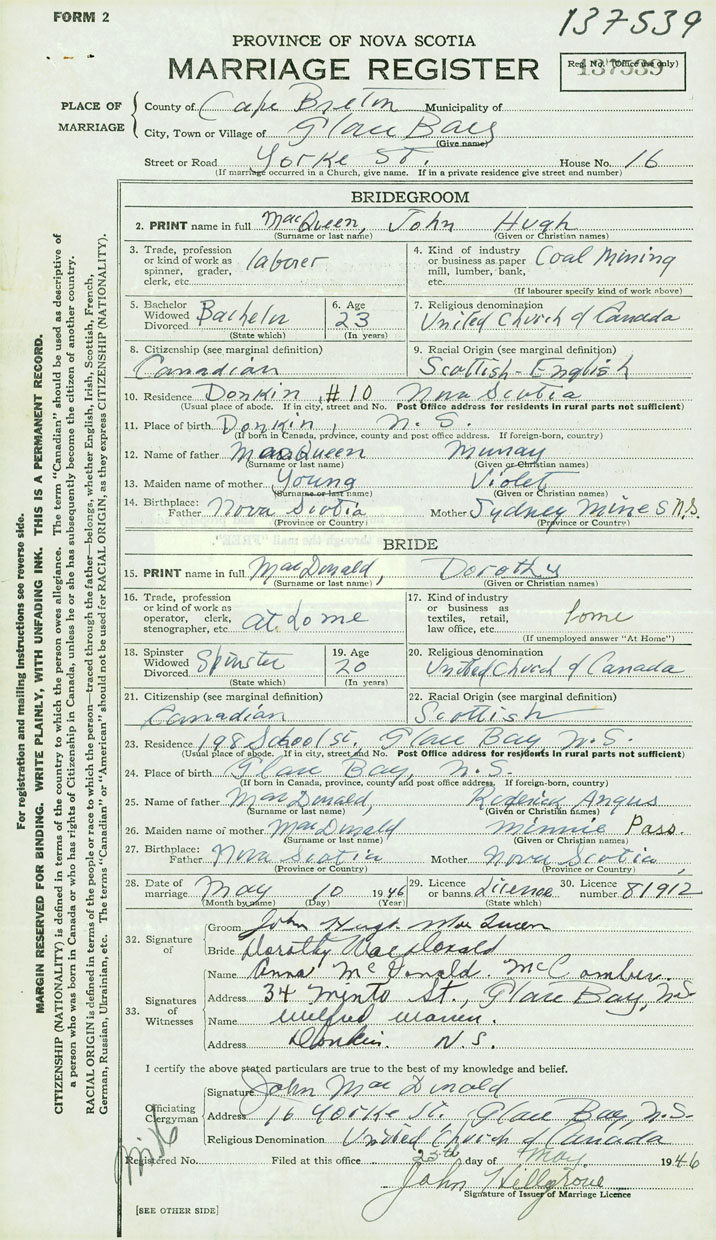 FORM 2
137539
PROVINCE OF NOVA SCOTIA
MARRIAGE REGISTER
Reg. No. (Office use only)
137539
PLACE OF MARRIAGE
County of Cape Breton Municipality of
City, Town or Village of Glace Bay
(Give name)
Street or Road Yorke St. House No. 16
(If marriage occurred in a Church, give name. If in a private residence give street and number)
BRIDEGROOM
2. PRINT name in full MacQueen, John Hugh
(Surname or last name) (Given or Christian names)
3. Trade, profession or kind of work as spinner, grader, clerk, etc. laborer
4. Kind of industry or business as paper mill, lumber, bank, etc. Coal Mining
(If labourer specify kind of work above)
5. Bachelor Widowed Divorced Bachelor
(State which)
6. Age 23
(In years)
7. Religious denomination
United Church of Canada
8. Citizenship (see marginal definition)
Canadian
9. Racial Origin (see marginal definition)
Scottish-English
10. Residence Donkin, #10 Nova Scotia
(Usual place of abode. If in city, street and No. Post Office address for residents in rural parts not sufficient)
11. Place of birth Donkin, N.S.
(If born in Canada, province, county and post office address. If foreign-born, country)
12. Name of father MacQueen Murray
(Surname or last name) (Given or Christian names)
13. Maiden name of mother Young Violet
(Surname or last name) (Given or Christian names)
14. Birthplace: Father Nova Scotia Mother Sydney Mines N.S.
(Province or Country) (Province or Country)
BRIDE
15. PRINT name in full MacDonald, Dorothy
(Surname or last name) (Given or Christian names)
16. Trade, profession or kind of work as operator, clerk, stenographer, etc. at home
17. Kind of industry or business as textiles, retail, law office, etc. home
(If unemployed answer "At Home")
18. Spinster Widowed Divorced Spinster
(State which)
19. Age 20
(In years)
20. Religious denomination
United Church of Canada
21. Citizenship (see marginal definition)
Canadian
22. Racial Origin (see marginal definition)
Scottish
23. Residence 198 School st, Glace Bay N.S.
(Usual place of abode. If in city, street and No. Post Office address for residents in rural parts not sufficient)
24. Place of birth Glace Bay, N.S.
(If born in Canada, province, county and post office address. If foreign-born, country)
25. Name of father MacDonald, Roderick Angus
(Surname or last name) (Given or Christian names)
26. Maiden name of mother MacDonald Minnie Pass.
(Surname or last name) (Given or Christian names)
27. Birthplace: Father Nova Scotia Mother Nova Scotia,
(Province or Country) (Province or Country)
28. Date of marriage May 10 1946
(Month by name) (Day) (Year)
29. Licence or banns Licence
(State which)
30. Licence number 81912
32. Signature of
Groom John Hugh MacQueen
Bride Dorothy MacDonald
33. Signatures of Witnesses
Name Anna McDonald McComber.
Address 34 Minto St., Glace Bay, N.S.
Name Wilfred Warren.
Address Donkin. N.S.
I certify the above stated particulars are true to the best of my knowledge and belief.
Officiating Clergyman
Signature John MacDonald
Address 16 Yorke St. Glace Bay N.S.
Religious Denomination United Church of Canada
Registered No. Filed at this office 25th day of May 1946
John Hillgrove
Signature of Issuer of Marriage Licence
[SEE OTHER SIDE]
For registration and mailing instructions see reverse side.
MARGIN RESERVED FOR BINDING. WRITE PLAINLY, WITH UNFADING INK. THIS IS A PERMANENT RECORD.
CITIZENSHIP (NATIONALITY) is defined in terms of the country to which the person owes allegiance. The term "Canadian" should be used as descriptive of
a person who was born in Canada or who has rights of Citizenship in Canada, unless he or she has subsequently become the citizen of another country.
RACIAL ORIGIN is defined in terms of the people or race to which the person—traced through the father—belongs, whether English, Irish, Scottish, French,
German, Russian, Ukrainian, etc. The terms "Canadian" or "American" should not be used for RACIAL ORIGIN, as they express CITIZENSHIP (NATIONALITY).